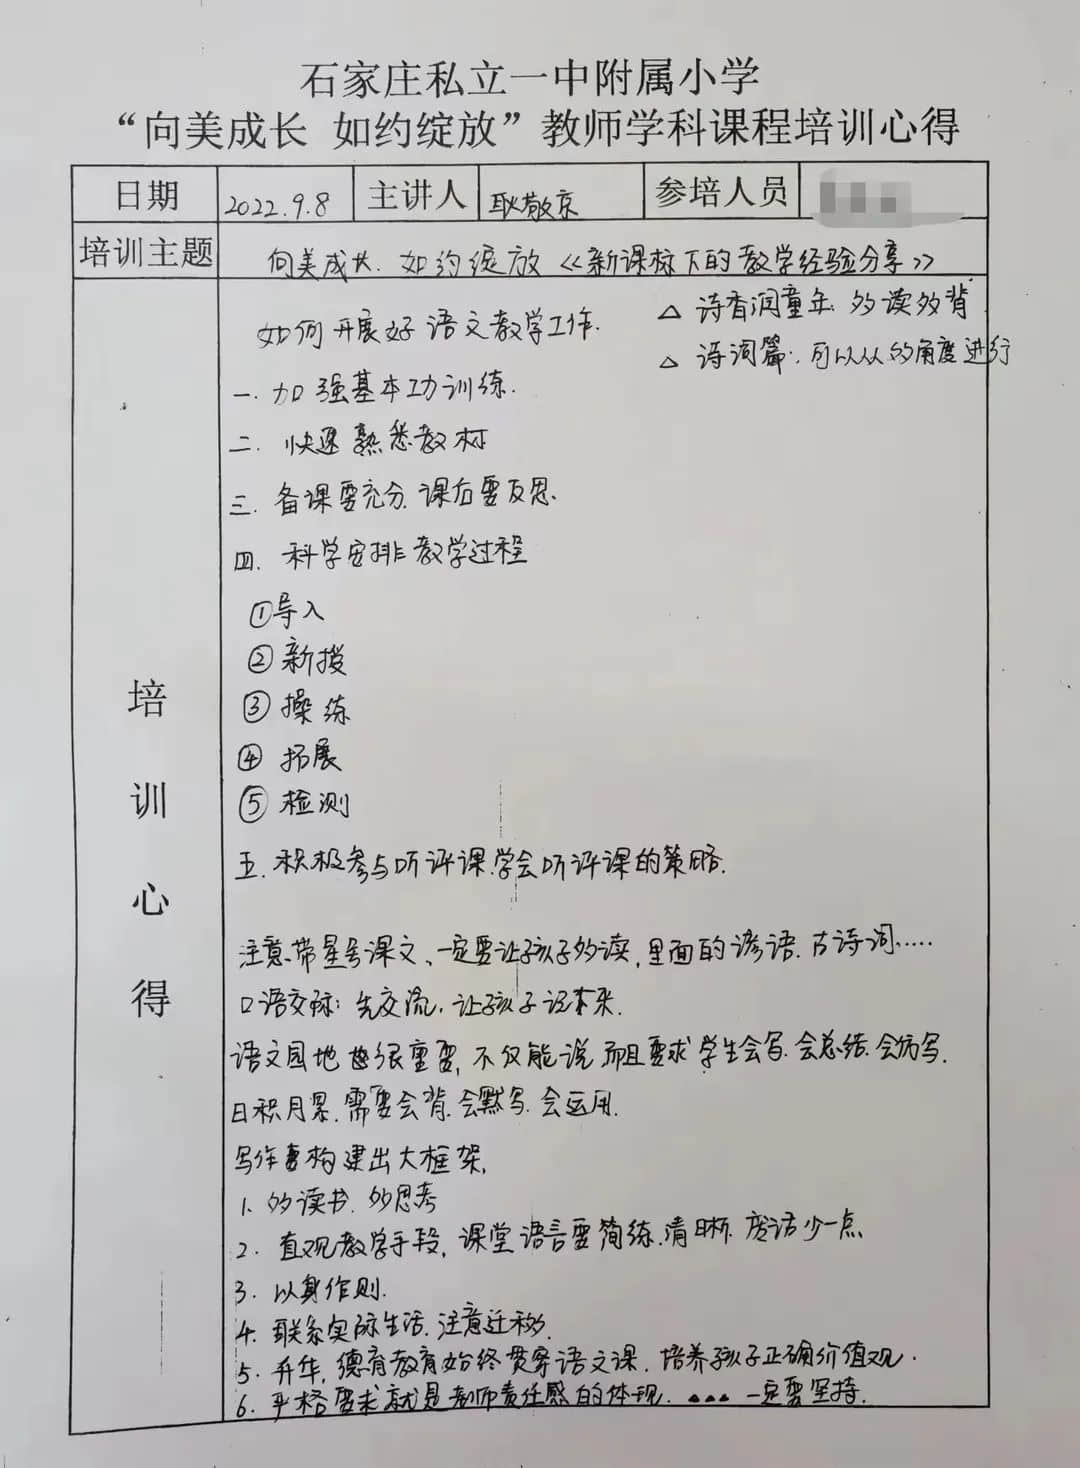 石家庄私立一中附属小学
“向美成长 如约绽放”教师学科课程培训心得
日期 2022.9.8 主讲人 耿敬京 参培人员
培训主题 向美成长.如约绽放《新课标下的教学经验分享》
培训心得
如何开展好语文教学工作.
△ 诗香润童年 多读多背.
△ 诗词篇:可以从的角度进行
一.加强基本功训练.
二.快速熟悉教材
三.备课要充分.课后要反思.
四.科学安排教学过程
①导入
②新授
③操练
④拓展
⑤检测
五.积极参与听评课.学会听评课的策略.
注意.带星号课文、一定要让孩子多读,里面的谚语.古诗词……
口语交际:先交流,让孩子记下来.
语文园地也很重要,不仅能说而且要求学生会写.会总结.会仿写.
日积月累.需要会背.会默写.会运用.
写作要构建出大框架,
1.多读书.多思考
2.直观教学手段,课堂语言要简练.清晰.废话少一点
3.以身作则.
4.联系实际生活.注意迁移.
5.升华,德育教育始终贯穿语文课.培养孩子正确价值观.
6.严格要求就是老师责任感的体现.▲▲▲一定要坚持.